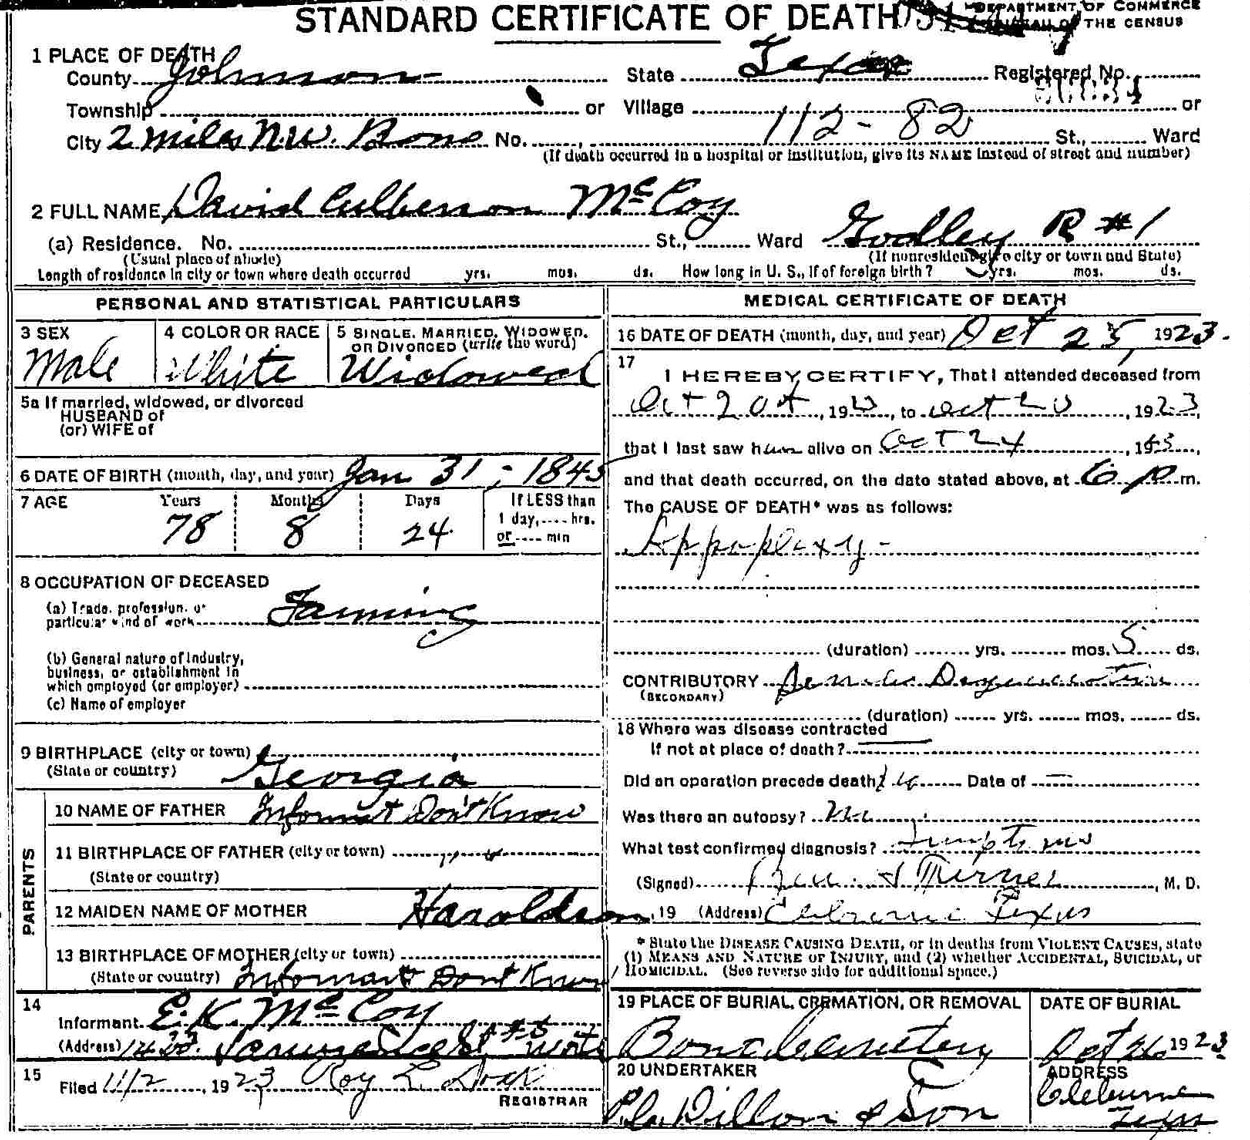 STANDARD CERTIFICATE OF DEATH
DEPARTMENT OF COMMERCE
BUREAU OF THE CENSUS
1 PLACE OF DEATH
County Johnson State Texas Registered No.
Township or Village or
City 2 miles N.W. Bono No. 112-82 St., Ward
(If death occurred in a hospital or institution, give its NAME instead of street and number)
2 FULL NAME David Culberson McCoy
(a) Residence. No. St., Ward Godley R #1
(Usual place of abode) (If nonresident give city or town and State)
Length of residence in city or town where death occurred yrs. mos. ds. How long in U. S., if of foreign birth? yrs. mos. ds.
PERSONAL AND STATISTICAL PARTICULARS
3 SEX 4 COLOR OR RACE 5 SINGLE, MARRIED, WIDOWED,
OR DIVORCED (write the word)
Male White Widowed
5a If married, widowed, or divorced
HUSBAND of
(or) WIFE of
6 DATE OF BIRTH (month, day, and year) Jan 31, - 1845
7 AGE Years Months Days If LESS than
1 day,.... hrs.
78 8 24 or.... min
8 OCCUPATION OF DECEASED
(a) Trade, profession, or
particular kind of work Farming
(b) General nature of Industry,
business, or establishment in
which employed (or employer)
(c) Name of employer
9 BIRTHPLACE (city or town)
(State or country) Georgia
PARENTS
10 NAME OF FATHER Informant Don't Know
11 BIRTHPLACE OF FATHER (city or town)
(State or country)
12 MAIDEN NAME OF MOTHER Haroldson
13 BIRTHPLACE OF MOTHER (city or town)
(State or country) Informant Don't Know
14
Informant. E. K. McCoy
(Address) St Ft Worth
15 Filed 11/2, 1923 Roy L.
REGISTRAR
MEDICAL CERTIFICATE OF DEATH
16 DATE OF DEATH (month, day, and year) Oct 25, 1923.
17
I HEREBY CERTIFY, That I attended deceased from
Oct 20, 19, to Oct 20, 1923,
that I last saw him alive on Oct 24, 19
and that death occurred, on the date stated above, at 6 p.m.
The CAUSE OF DEATH* was as follows:
Appoplexy -
(duration) yrs. mos. 5 ds.
CONTRIBUTORY Senile Degeneration
(SECONDARY)
(duration) yrs. mos. ds.
18 Where was disease contracted
If not at place of death?
Did an operation precede death? Date of
Was there an autopsy? No
What test confirmed diagnosis? Symptoms
(Signed) Turner, M. D.
, 19 (Address) Cleburne Texas
* State the DISEASE CAUSING DEATH, or in deaths from VIOLENT CAUSES, state
(1) MEANS AND NATURE OF INJURY, and (2) whether ACCIDENTAL, SUICIDAL, or
HOMICIDAL. (See reverse side for additional space.)
19 PLACE OF BURIAL, CREMATION, OR REMOVAL DATE OF BURIAL
Bono Cemetery Oct 26 1923
20 UNDERTAKER ADDRESS
Dillon & Son Cleburne
Texas